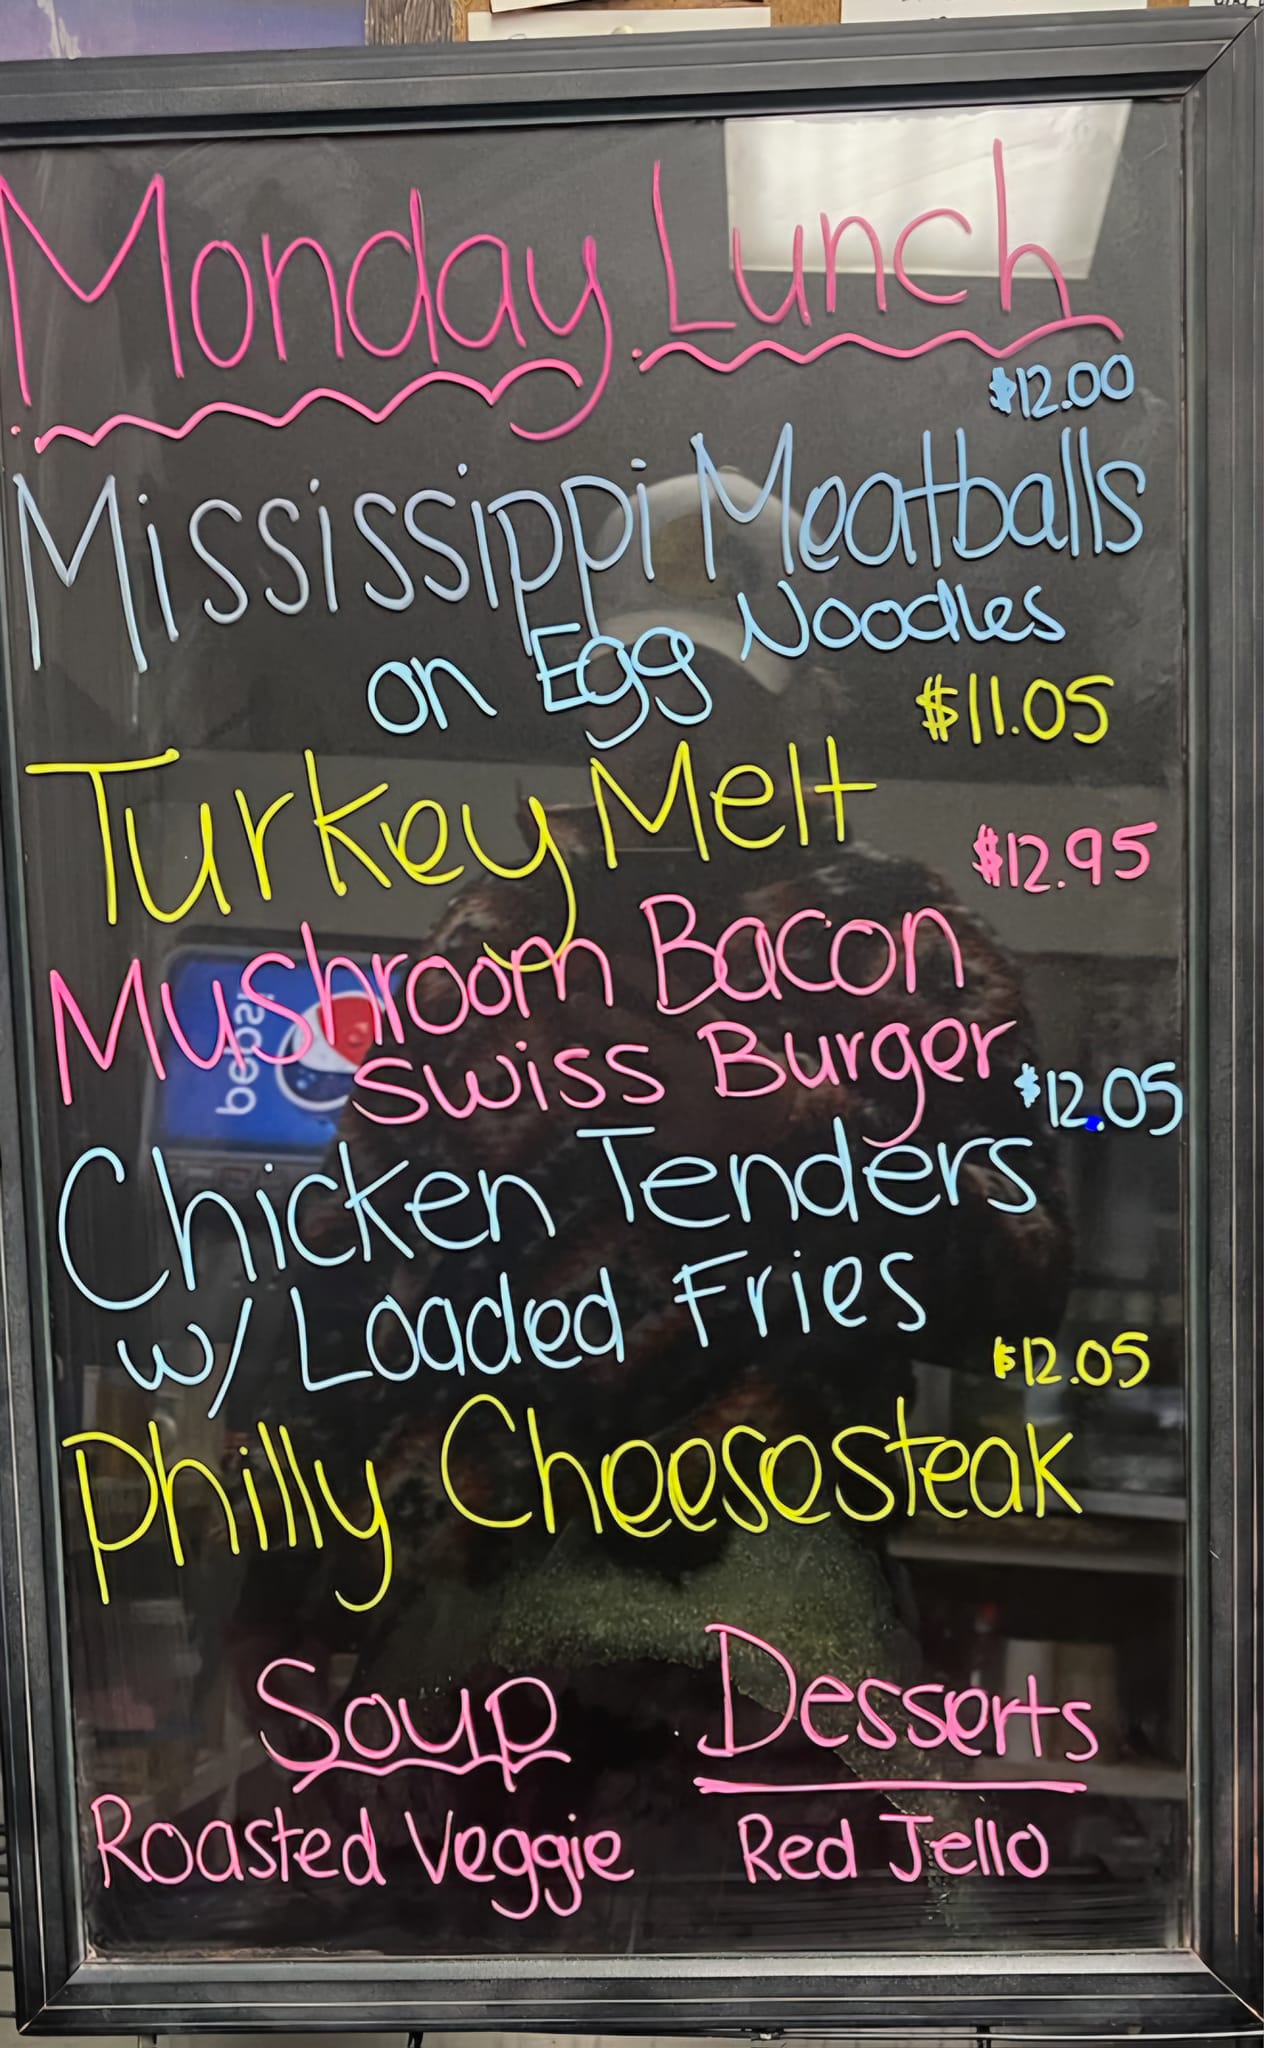 Monday Lunch
$12.00
Mississippi Meatballs
on Egg Noodles
$11.05
Turkey Melt
$12.95
Mushroom Bacon
Swiss Burger
$12.05
Chicken Tenders
w/ Loaded Fries
$12.05
Philly Cheesesteak
Soup
Desserts
Roasted Veggie
Red Jello
pepsi